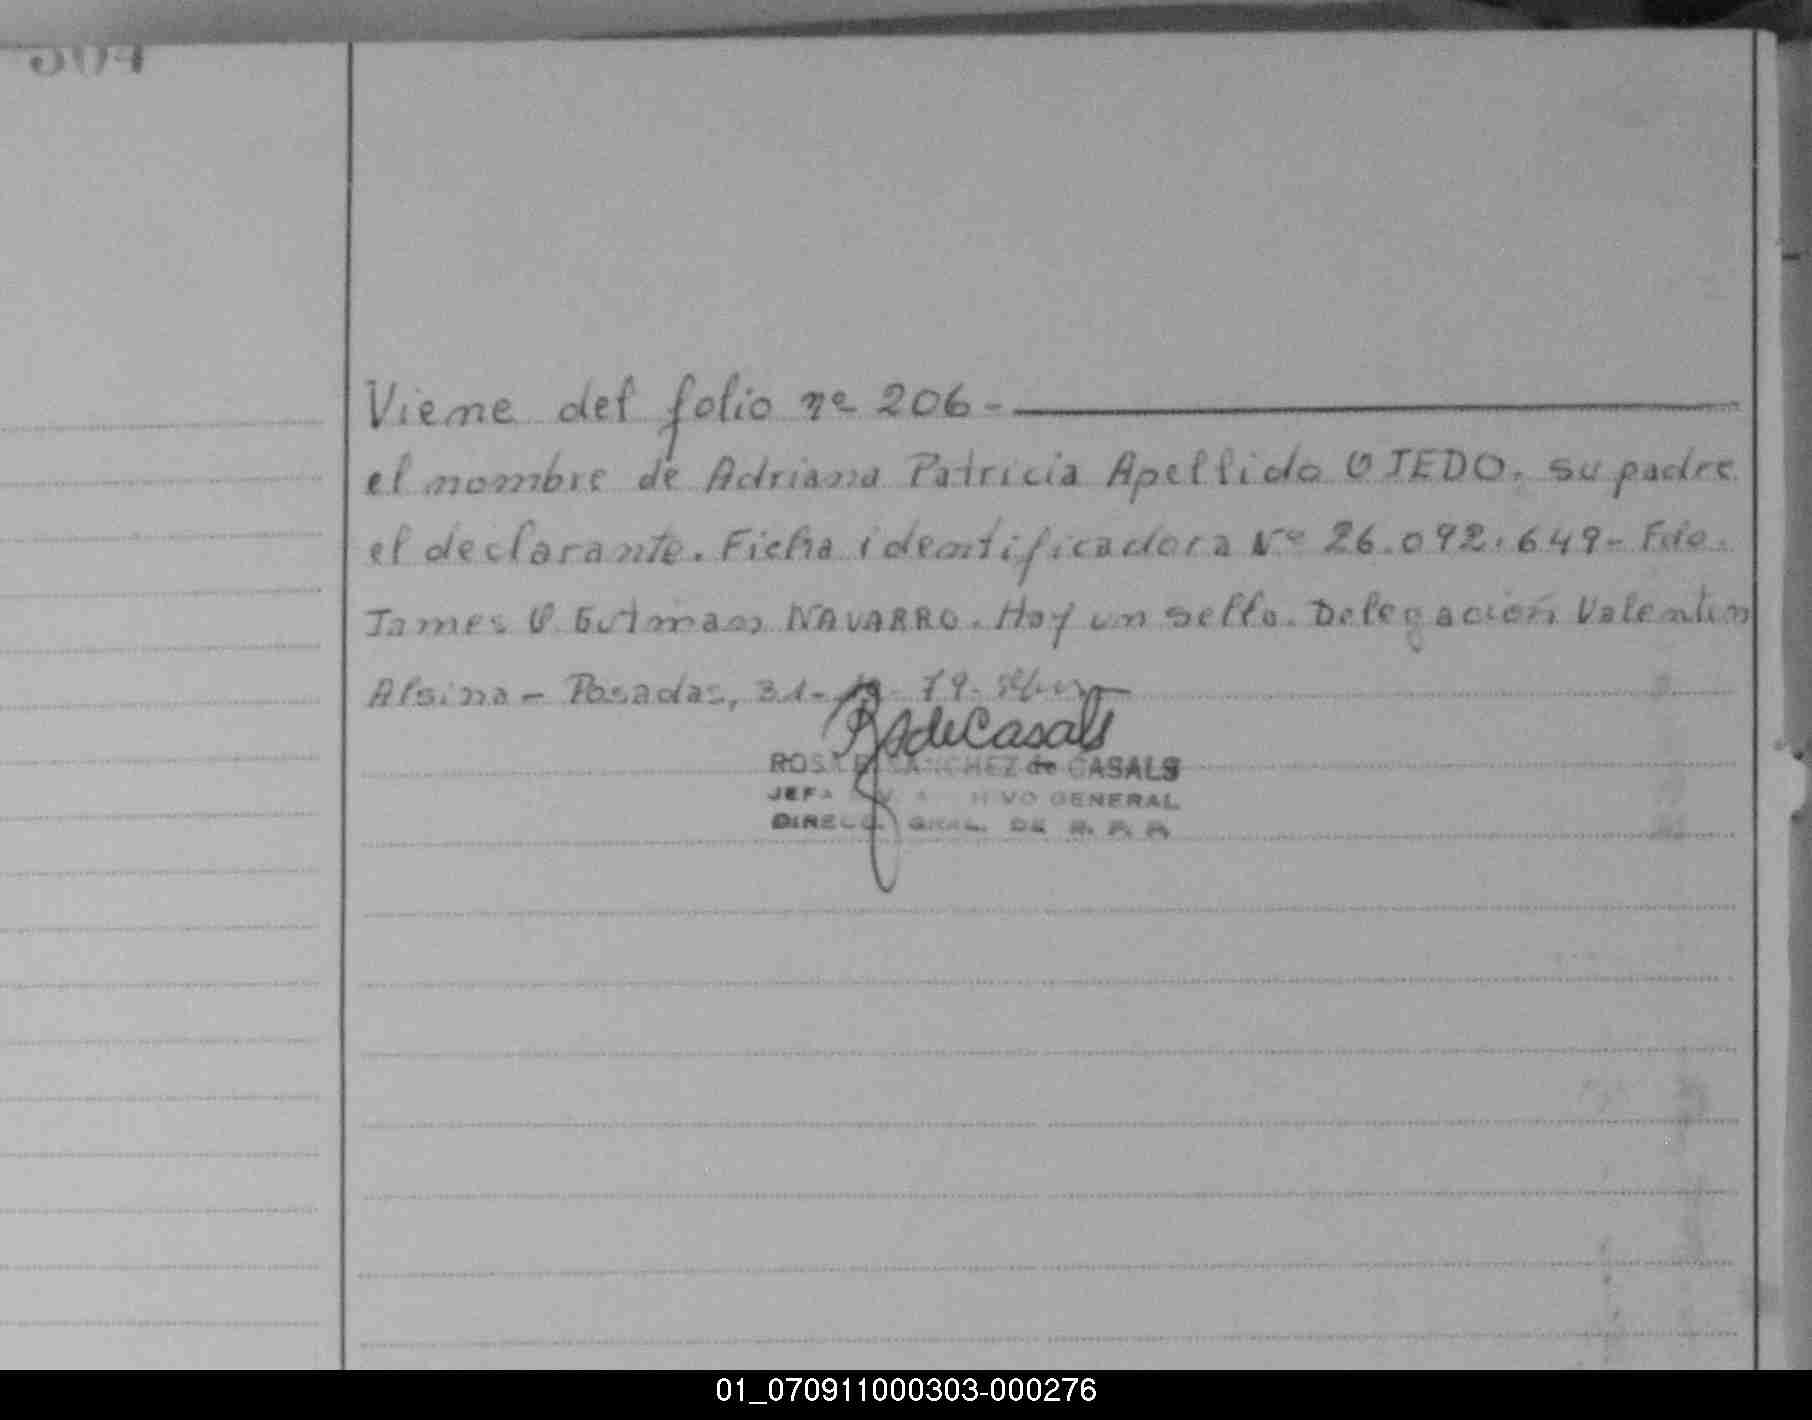 Viene del folio nº 206-
el nombre de Adriana Patricia Apellido OJEDO. su padre
el declarante. Ficha identificadora Nº 26.092.649- Fdo.
James O. Gutman NAVARRO. Hay un sello. Delegación Valentin
Alsina - Posadas, 31- 79-
RSdeCasals
ROSA E. SANCHEZ de CASALS
JEFA DIV. ARCHIVO GENERAL
DIREC. GRAL. DE R. P. P.
01_070911000303-000276